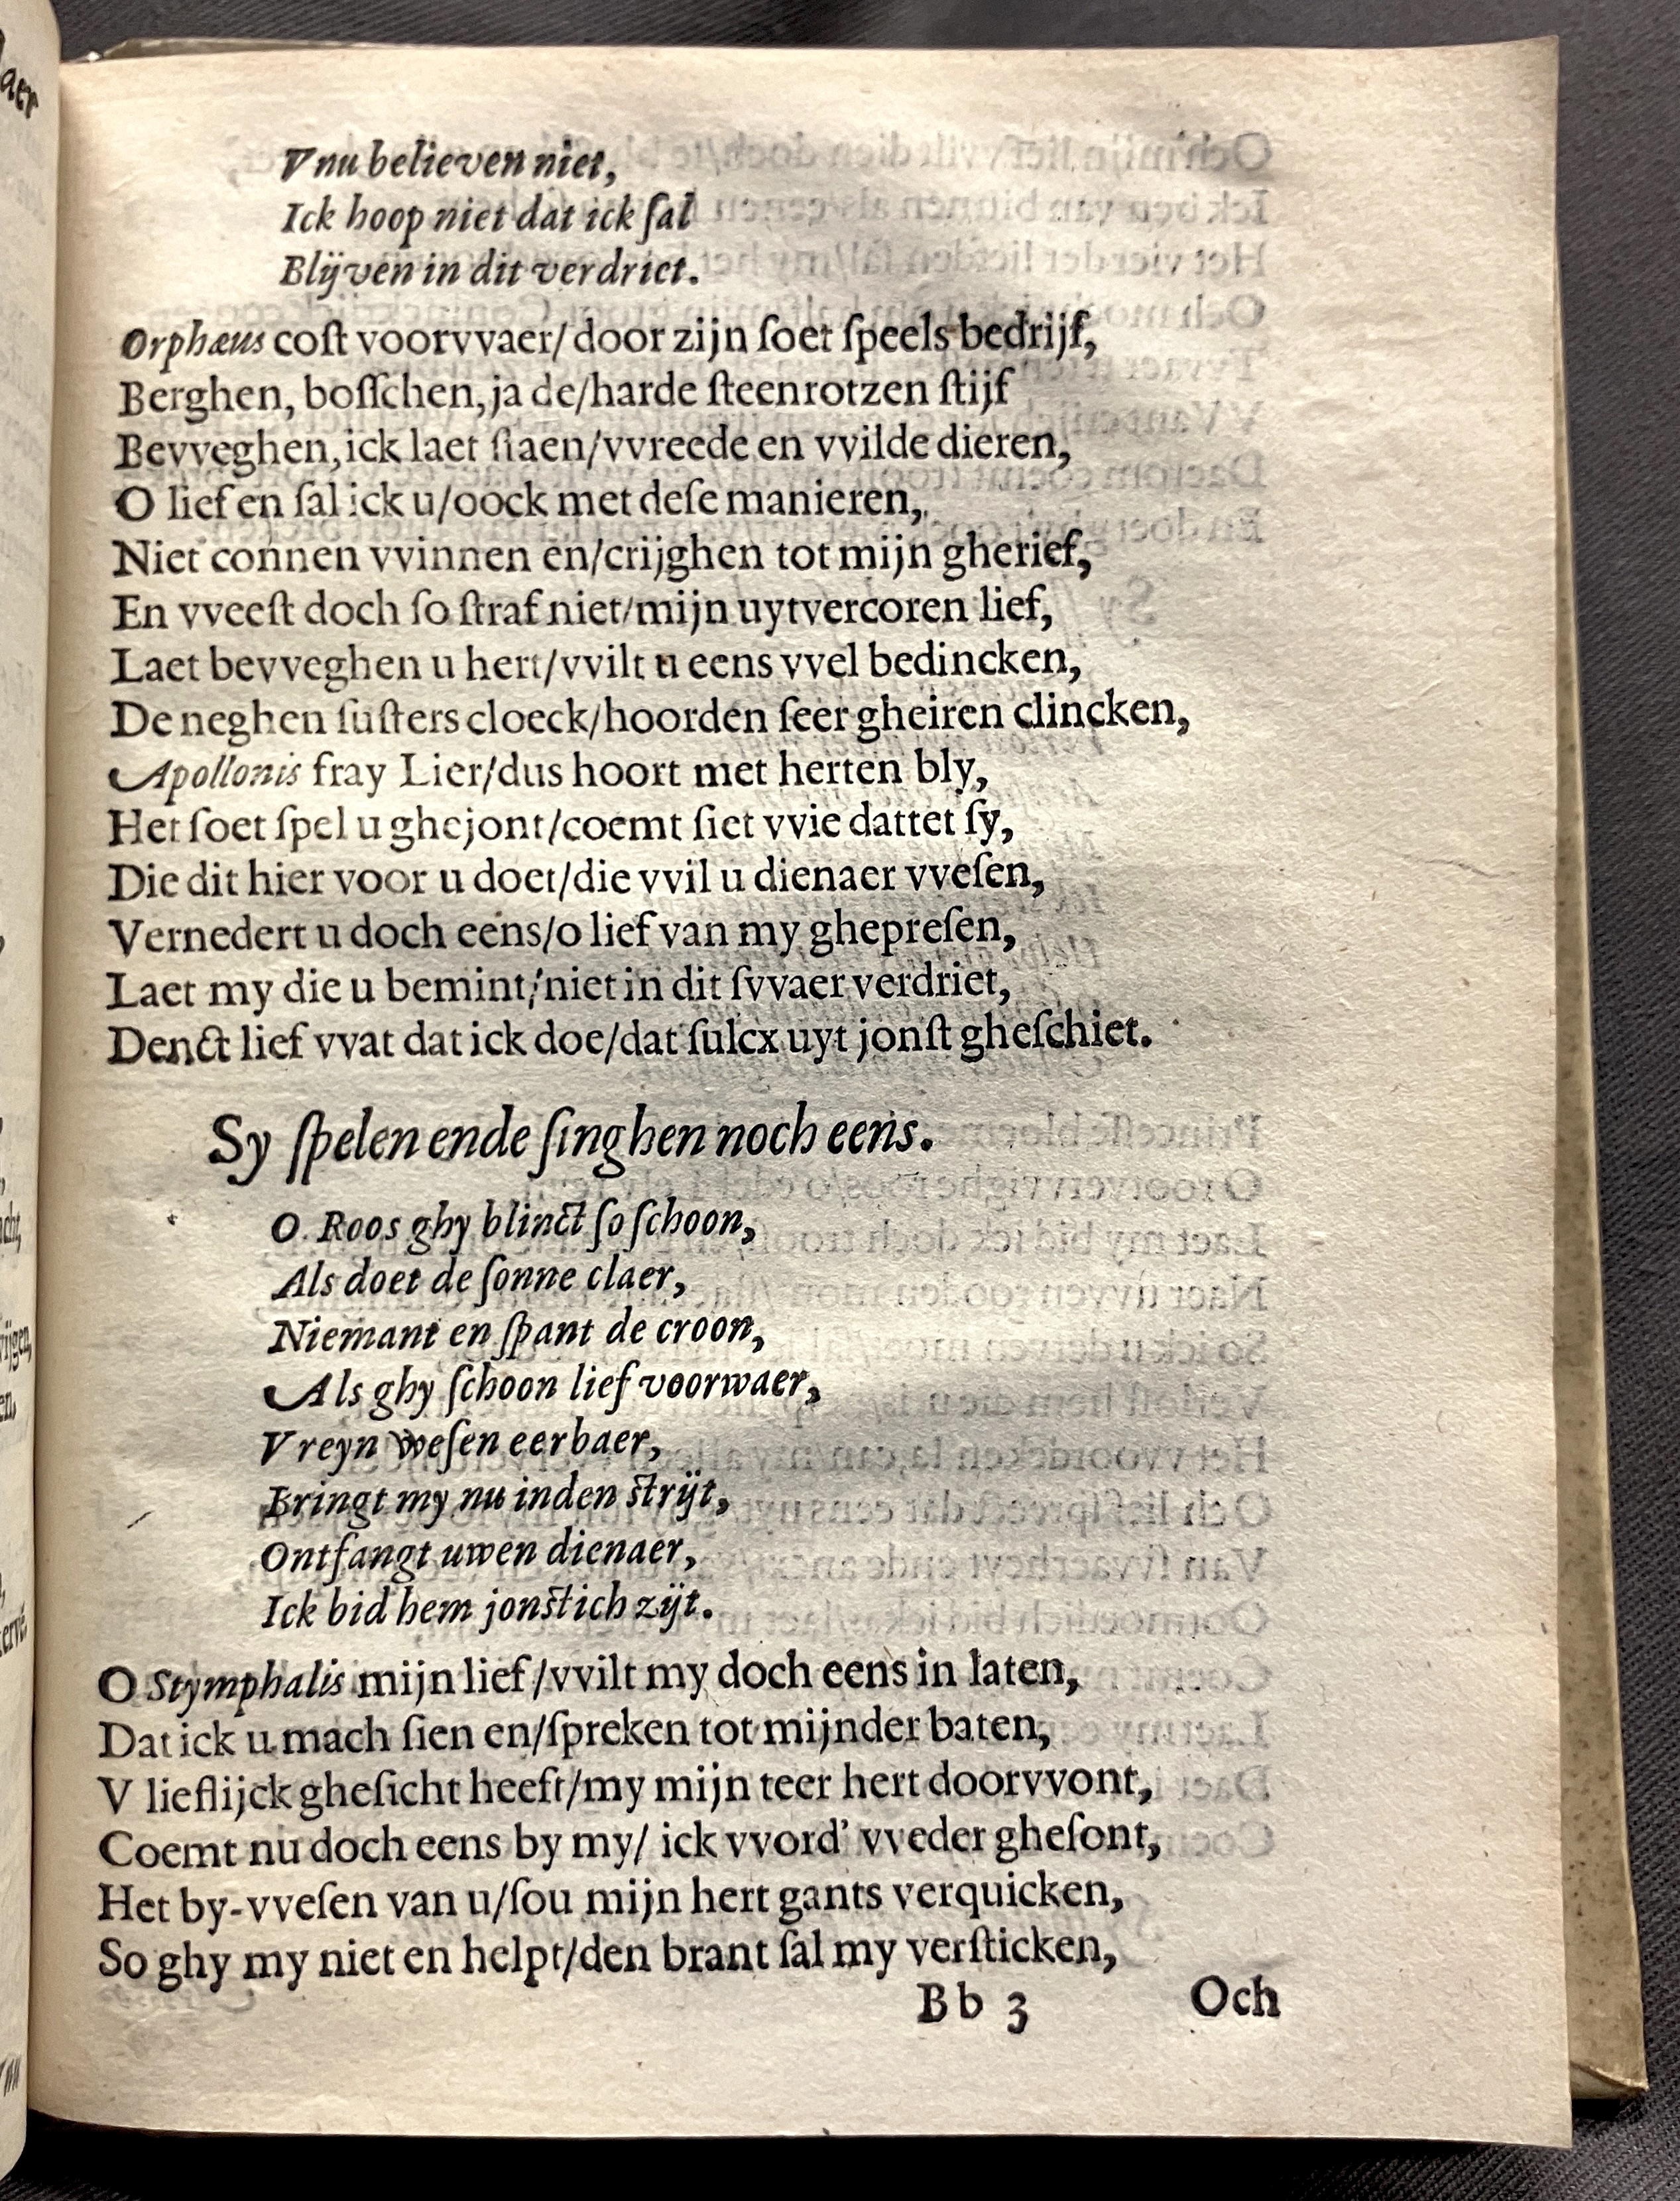 V nu believen niet,
Ick hoop niet dat ick ſal
Blijven in dit verdriet.
Orphæus coſt voorvvaer/ door zijn ſoet ſpeels bedrijf,
Berghen, boſſchen, ja de/harde ſteenrotzen ſtijf
Bevveghen, ick laet ſtaen/vvreede en vvilde dieren,
O lief en ſal ick u/oock met deſe manieren,
Niet connen vvinnen en/crijghen tot mijn gherief,
En vveeſt doch ſo ſtraf niet/mijn uytvercoren lief,
Laet bevveghen u hert/vvilt u eens vvel bedincken,
De neghen ſuſters cloeck/hoorden ſeer gheiren clincken,
Apollonis fray Lier/dus hoort met herten bly,
Het ſoet ſpel u ghejont/coemt ſiet vvie dattet ſy,
Die dit hier voor u doet/die vvil u dienaer vveſen,
Vernedert u doch eens/o lief van my ghepreſen,
Laet my die u bemint/niet in dit ſvvaer verdriet,
Denct lief vvat dat ick doe/dat ſulcx uyt jonſt gheſchiet.
Sy ſpelen ende ſinghen noch eens.
O Roos ghy blinct ſo ſchoon,
Als doet de ſonne claer,
Niemant en ſpant de croon,
Als ghy ſchoon lief voorwaer,
V reyn weſen eerbaer,
Bringt my nu inden ſtrijt,
Ontfangt uwen dienaer,
Ick bid hem jonſtich zijt.
O Stymphalis mijn lief/vvilt my doch eens in laten,
Dat ick u mach ſien en/ſpreken tot mijnder baten,
V lieflijck gheſicht heeft/my mijn teer hert doorvvont,
Coemt nu doch eens by my/ ick vvord' vveder gheſont,
Het by-vveſen van u/ſou mijn hert gants verquicken,
So ghy my niet en helpt/den brant ſal my verſticken,
B b 3 Och